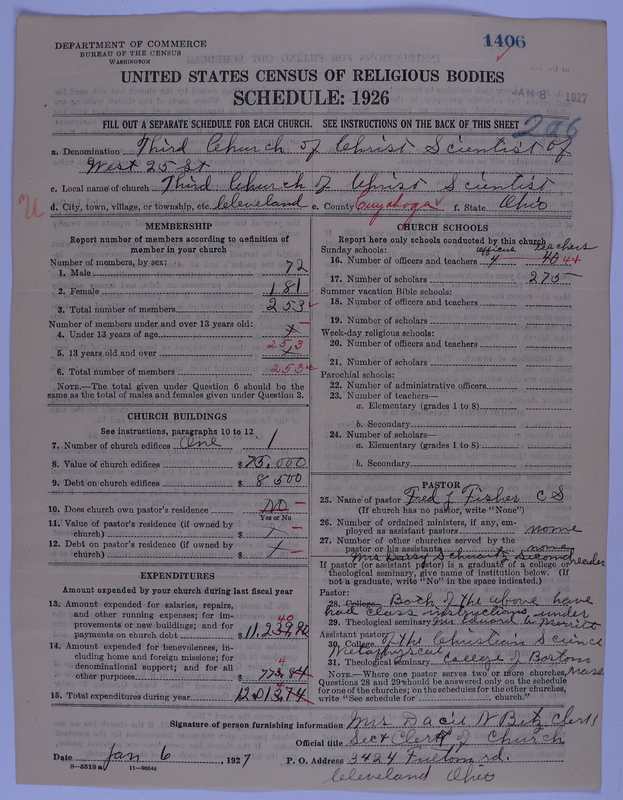 DEPARTMENT OF COMMERCE
BUREAU OF THE CENSUS
WASHINGTON
1406
UNITED STATES CENSUS OF RELIGIOUS BODIES
SCHEDULE: 1926
JAN 8 1927
FILL OUT A SEPARATE SCHEDULE FOR EACH CHURCH. SEE INSTRUCTIONS ON THE BACK OF THIS SHEET
286
a. Denomination Third Church of Christ Scientist of
West 25 St
c. Local name of church Third Church of Christ Scientist
U d. City, town, village, or township, etc. Cleveland e. County Cuyahoga f. State Ohio
MEMBERSHIP
Report number of members according to definition of
member in your church
Number of members, by sex:
1. Male 72
2. Female 181
3. Total number of members 253
Number of members under and over 13 years old:
4. Under 13 years of age x
5. 13 years old and over 253
6. Total number of members 253
NOTE.—The total given under Question 6 should be the
same as the total of males and females given under Question 3.
CHURCH BUILDINGS
See instructions, paragraphs 10 to 12
7. Number of church edifices One 1
8. Value of church edifices $ 75,000
9. Debt on church edifices $ 8500
10. Does church own pastor's residence No
Yes or No
11. Value of pastor's residence (if owned by
church) $ x
12. Debt on pastor's residence (if owned by
church) $ x
EXPENDITURES
Amount expended by your church during last fiscal year
13. Amount expended for salaries, repairs,
and other running expenses; for im-
provements or new buildings; and for
payments on church debt $ 11,239.90
40
14. Amount expended for benevolences, in-
cluding home and foreign missions; for
denominational support; and for all
other purposes $ 773.84
4
15. Total expenditures during year 12013.74
CHURCH SCHOOLS
Report here only schools conducted by this church
Sunday schools: officers teachers
16. Number of officers and teachers 4 40 44
17. Number of scholars 275
Summer vacation Bible schools:
18. Number of officers and teachers
19. Number of scholars
Week-day religious schools:
20. Number of officers and teachers
21. Number of scholars
Parochial schools:
22. Number of administrative officers
23. Number of teachers—
a. Elementary (grades 1 to 8)
b. Secondary
24. Number of scholars—
a. Elementary (grades 1 to 8)
b. Secondary
PASTOR
25. Name of pastor Fred L Fisher C S
(If church has no pastor, write "None")
26. Number of ordained ministers, if any, em-
ployed as assistant pastors none
27. Number of other churches served by the
pastor or his assistants none
Mrs Daisy Schwartz Second reader
If pastor (or assistant pastor) is a graduate of a college or
theological seminary, give name of institution below. (If
not a graduate, write "No" in the space indicated.)
Pastor:
28. College Both of the above have
had class instructions under
29. Theological seminary Mr Edward A. Merritt
Assistant pastor:
30. College of the Christian Science
Metaphysical
31. Theological seminary College of Boston
Mass
NOTE.—Where one pastor serves two or more churches,
Questions 28 and 29 should be answered only on the schedule
for one of the churches; on the schedules for the other churches,
write "See schedule for church."
Signature of person furnishing information Mrs. David N Betz Clerk
Official title Sect Clerk of Church
Date Jan 6, 1927 P. O. Address 3424 Fulton rd.
8—5518a 11—9664c
Cleveland Ohio